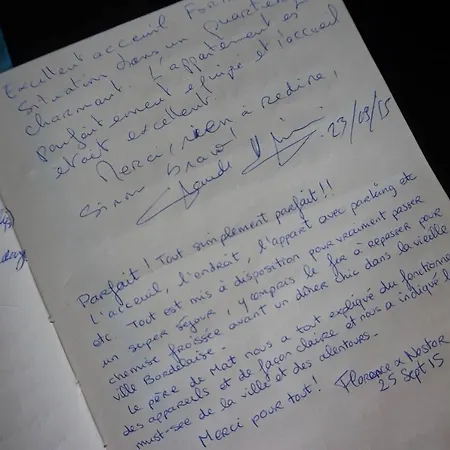 Excellent acceuil
Situation dans un quartier
charmant. L'appartement est
parfaitement et l'accueil
était excellent!
Merci, rien à redire,
sinon bravo!
23/09/15
Parfait! Tout simplement parfait!!
L'acceuil, l'endroit, l'appart avec parking etc
etc. Tout est mis à disposition pour vraiment passer
un super séjour, y compris le fer à repasser pour
chemise froissée avant un dîner chic dans la vieille
ville Bordelaise.
Le père de Mat nous a tout expliqué du fonctionne
des appareils et de façon claire et nous a indiqué l
must-see de la ville et des alentours.
Merci pour tout! Florence x Nostor
25 Sept 15